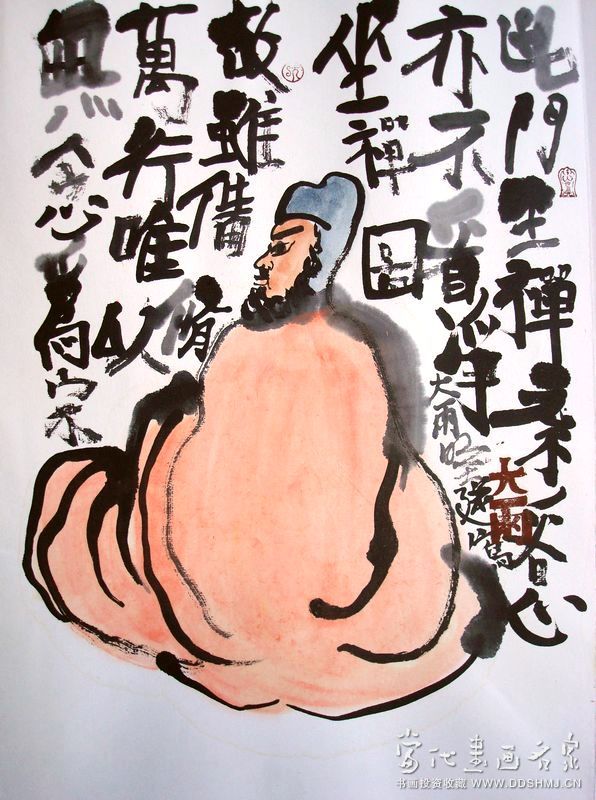 此門坐禪元不着心
亦不着淨
大雨
大雨
坐禪圖
故雖備修
萬行唯以
無念為宗
當代書畫名家
书画投资收藏 WWW.DDSHMJ.CN